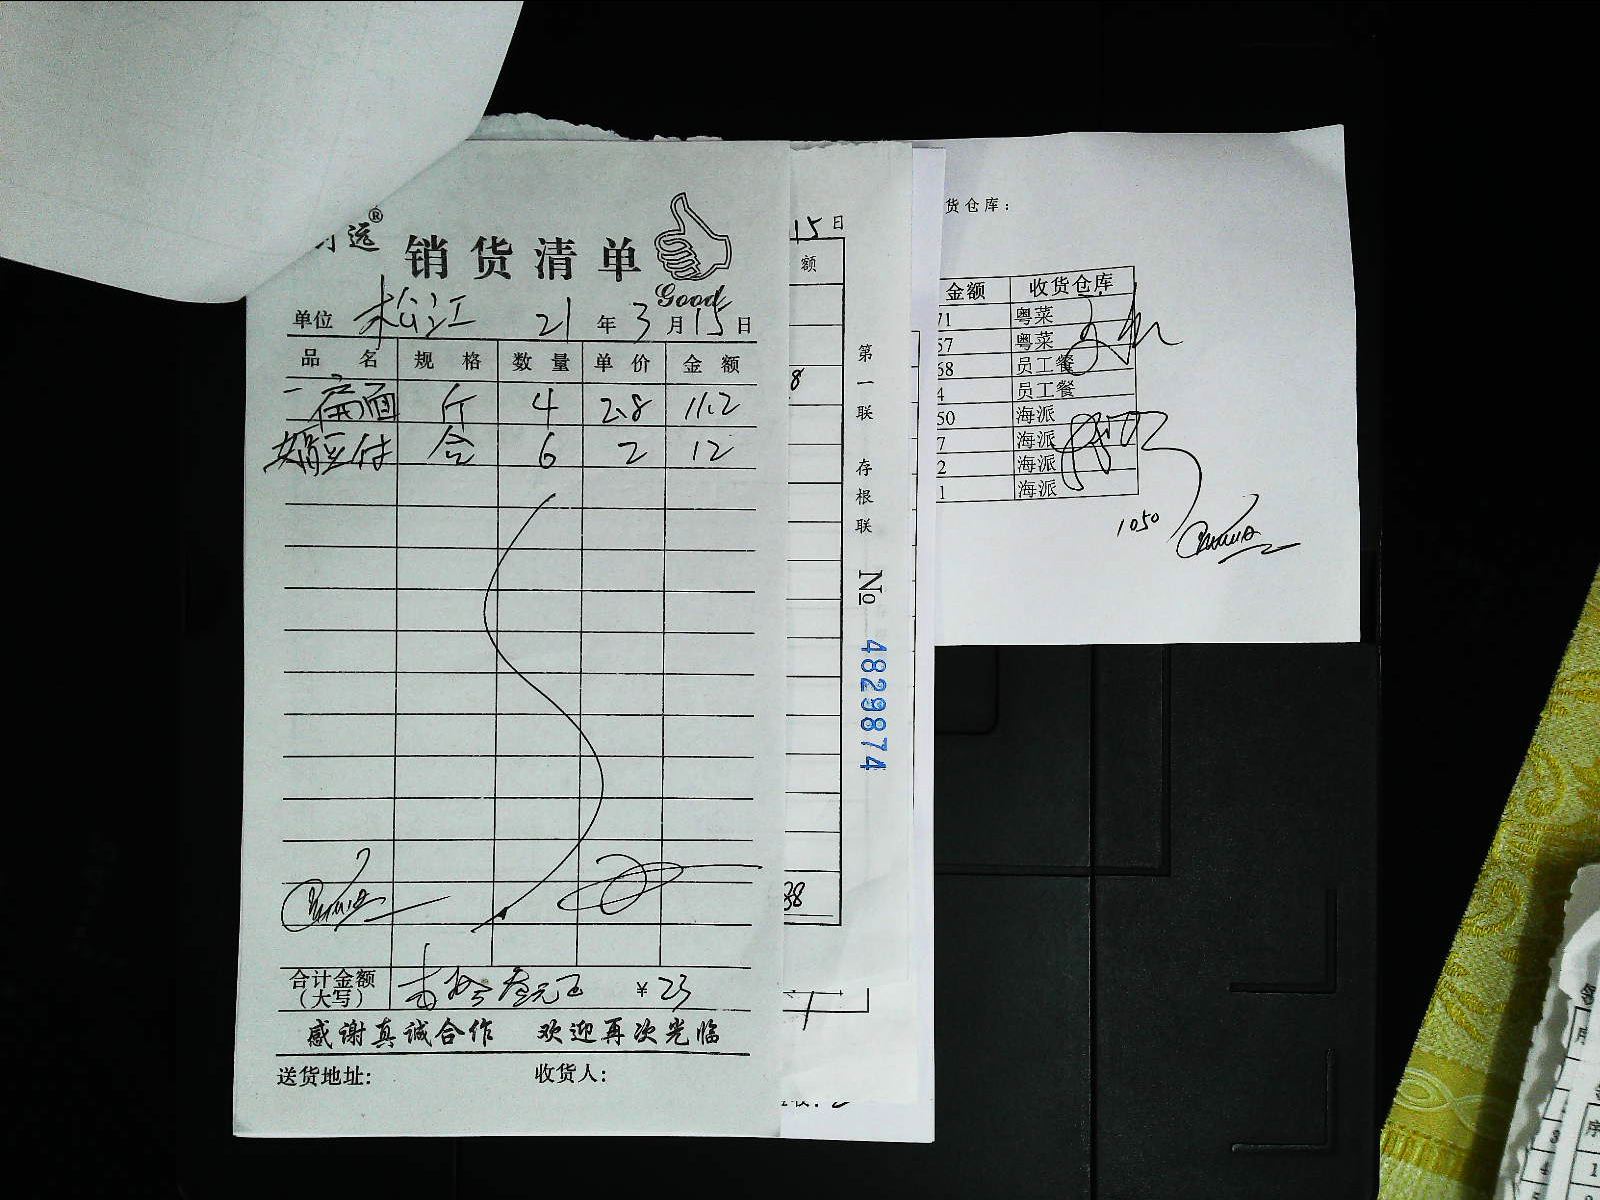 远®
销货清单
Good
单位 松江 21年3月15日
品名 规格 数量 单价 金额
面 斤 4 2.8 11.2
合 6 2 12
合计金额
(大写) 叁元正 ¥23
感谢真诚合作 欢迎再次光临
送货地址: 收货人:
15日
额
8
38
第一联 存根联 № 4829874
货仓库:
金额 收货仓库
71 粤菜
57 粤菜
68 员工餐
4 员工餐
50 海派
7 海派
2 海派
1 海派
1050
序
3
4
1